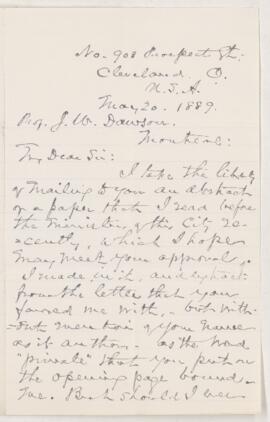 No. 908 Prospect St.
Cleveland, O.
U.S.A.
May 20. 1889.
Prof. J. W. Dawson.
Montreal:
My Dear Sir:
I take the liberty
of mailing to you an abstract
of a paper that I read before
the ministers of this City re-
cently, which I hope
may meet your approval.
I made in it, an extract
from the letter that you
favored me with, but with-
out mention of your name
as its author. as the word
"private" that you put on
the opening page bound
me. But should I ever